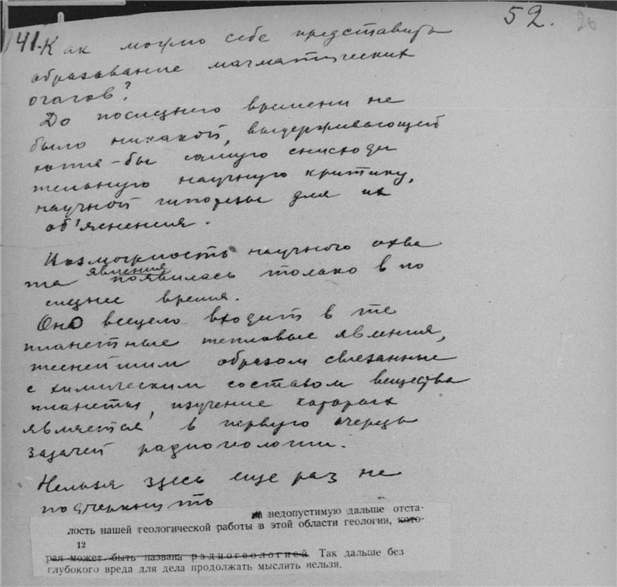 52. 26
41. Как можно себе представить
образование магматических
очагов?
До последнего времени не
было никакой, выдерживающей
хотя-бы самую снисходи
тельную научную критику,
научной гипотезы для их
об'яснения.
Возможность научного охва
та явления появилась только в по
следнее время.
Оно всецело входит в те
планетные тепловые явления,
теснейшим образом связанные
с химическим составом вещества
планеты, изучение которых
является в первую очередь
задачей радиогеологии.
Нельзя здесь еще раз не
подчеркнуть
недопустимую дальше отста-
лость нашей геологической работы в этой области геологии, кото-
12
рая может быть названа радиогеологией. Так дальше без
глубокого вреда для дела продолжать мыслить нельзя.